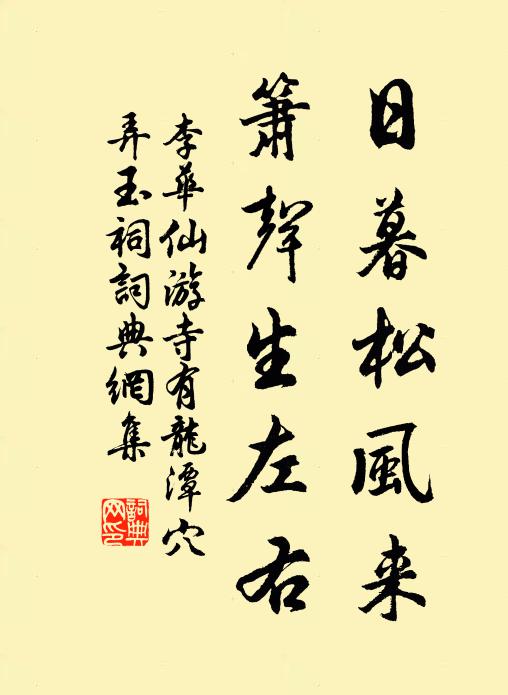 日暮松風来
簫聲生左右
李華仙游寺有龍潭穴
弄玉祠詞典網集
詞典网印